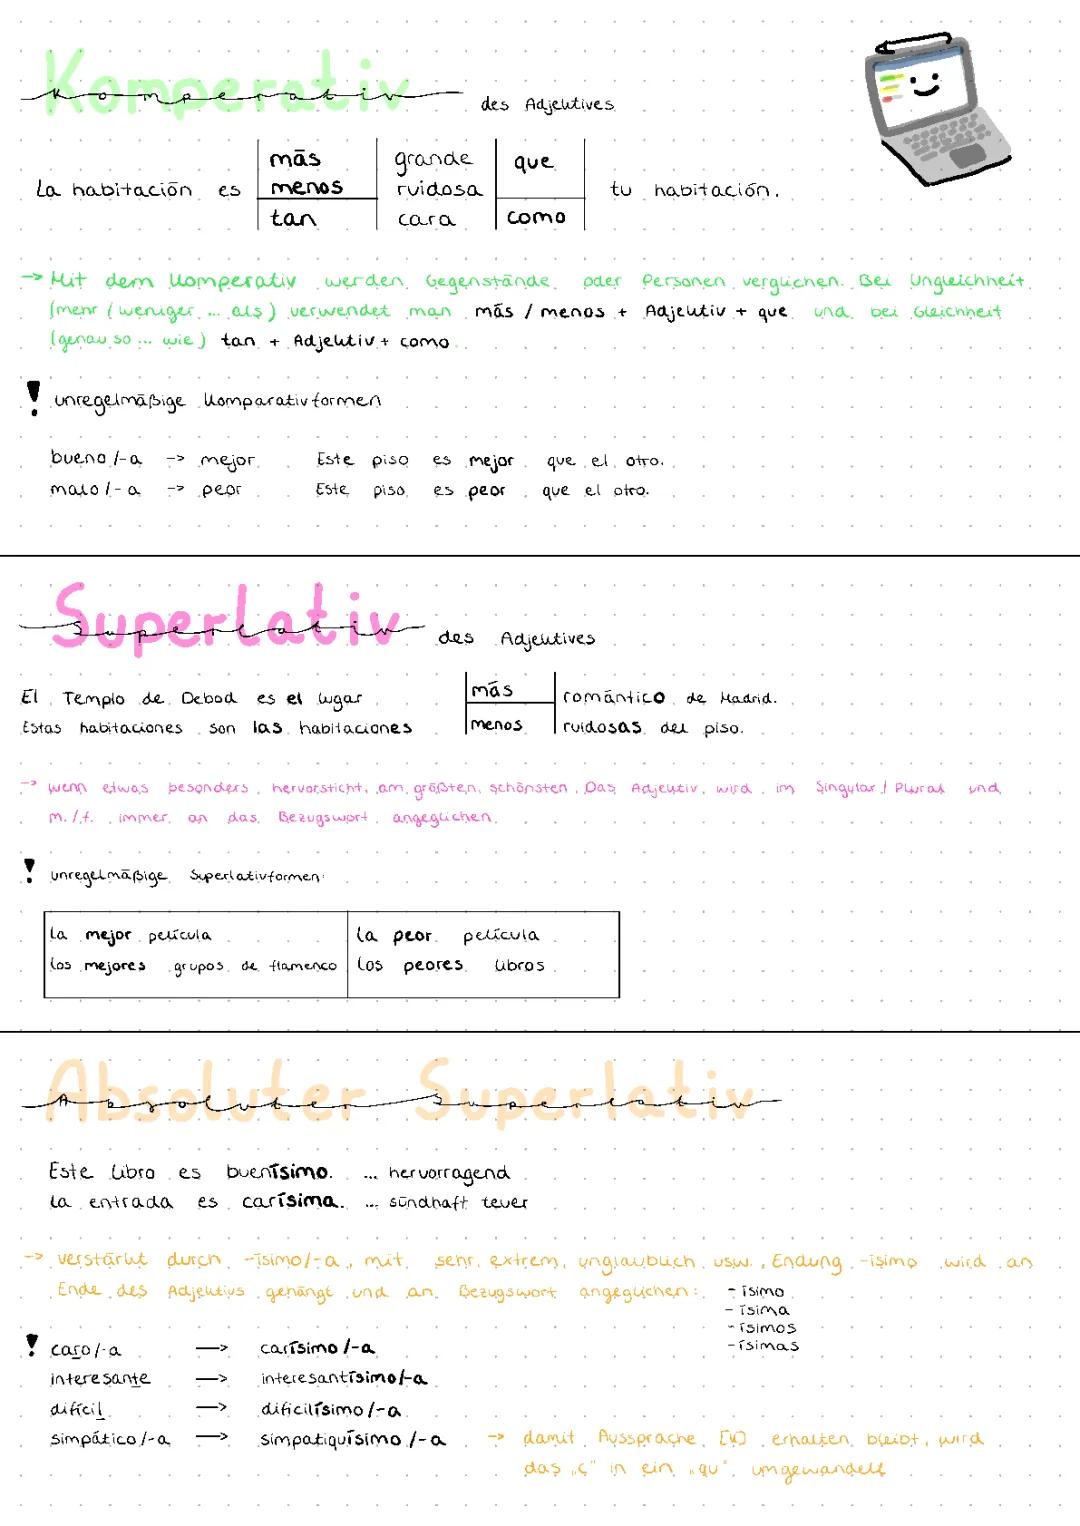 Komperativ des Adjektives
más grande que
La habitación es menos ruidosa tu habitación.
tan cara como
-> Mit dem Komperativ werden Gegenstände oder Personen verglichen. Bei Ungleichheit
(mehr / weniger ... als) verwendet man más / menos + Adjektiv + que und bei Gleichheit
(genau so ... wie) tan + Adjektiv + como
! unregelmäßige Komparativformen
bueno/-a -> mejor Este piso es mejor que el otro.
malo/-a -> peor Este piso es peor que el otro.
Superlativ des Adjektives
El Templo de Debod es el lugar más romántico de Madrid.
Estas habitaciones son las habitaciones menos ruidosas del piso.
-> wenn etwas besonders hervorsticht, am größten, schönsten. Das Adjektiv wird im Singular / Plural und
m./f. immer an das Bezugswort angeglichen.
! unregelmäßige Superlativformen:
La mejor película La peor película
los mejores grupos de flamenco Los peores libros
Absoluter Superlativ
Este libro es buenísimo. ... hervorragend
La entrada es carísima. ... sündhaft teuer
-> verstärkt durch -ísimo/-a, mit sehr, extrem, unglaublich usw., Endung -ísimo wird an
Ende des Adjektivs gehängt und an Bezugswort angeglichen: -ísimo
-ísima
-ísimos
-ísimas
! caro/-a -> carísimo/-a
interesante -> interesantísimo/-a
difícil -> dificilísimo/-a
simpático/-a -> simpatiquísimo/-a -> damit Aussprache [k] erhalten bleibt, wird
das „c" in ein „qu" umgewandelt